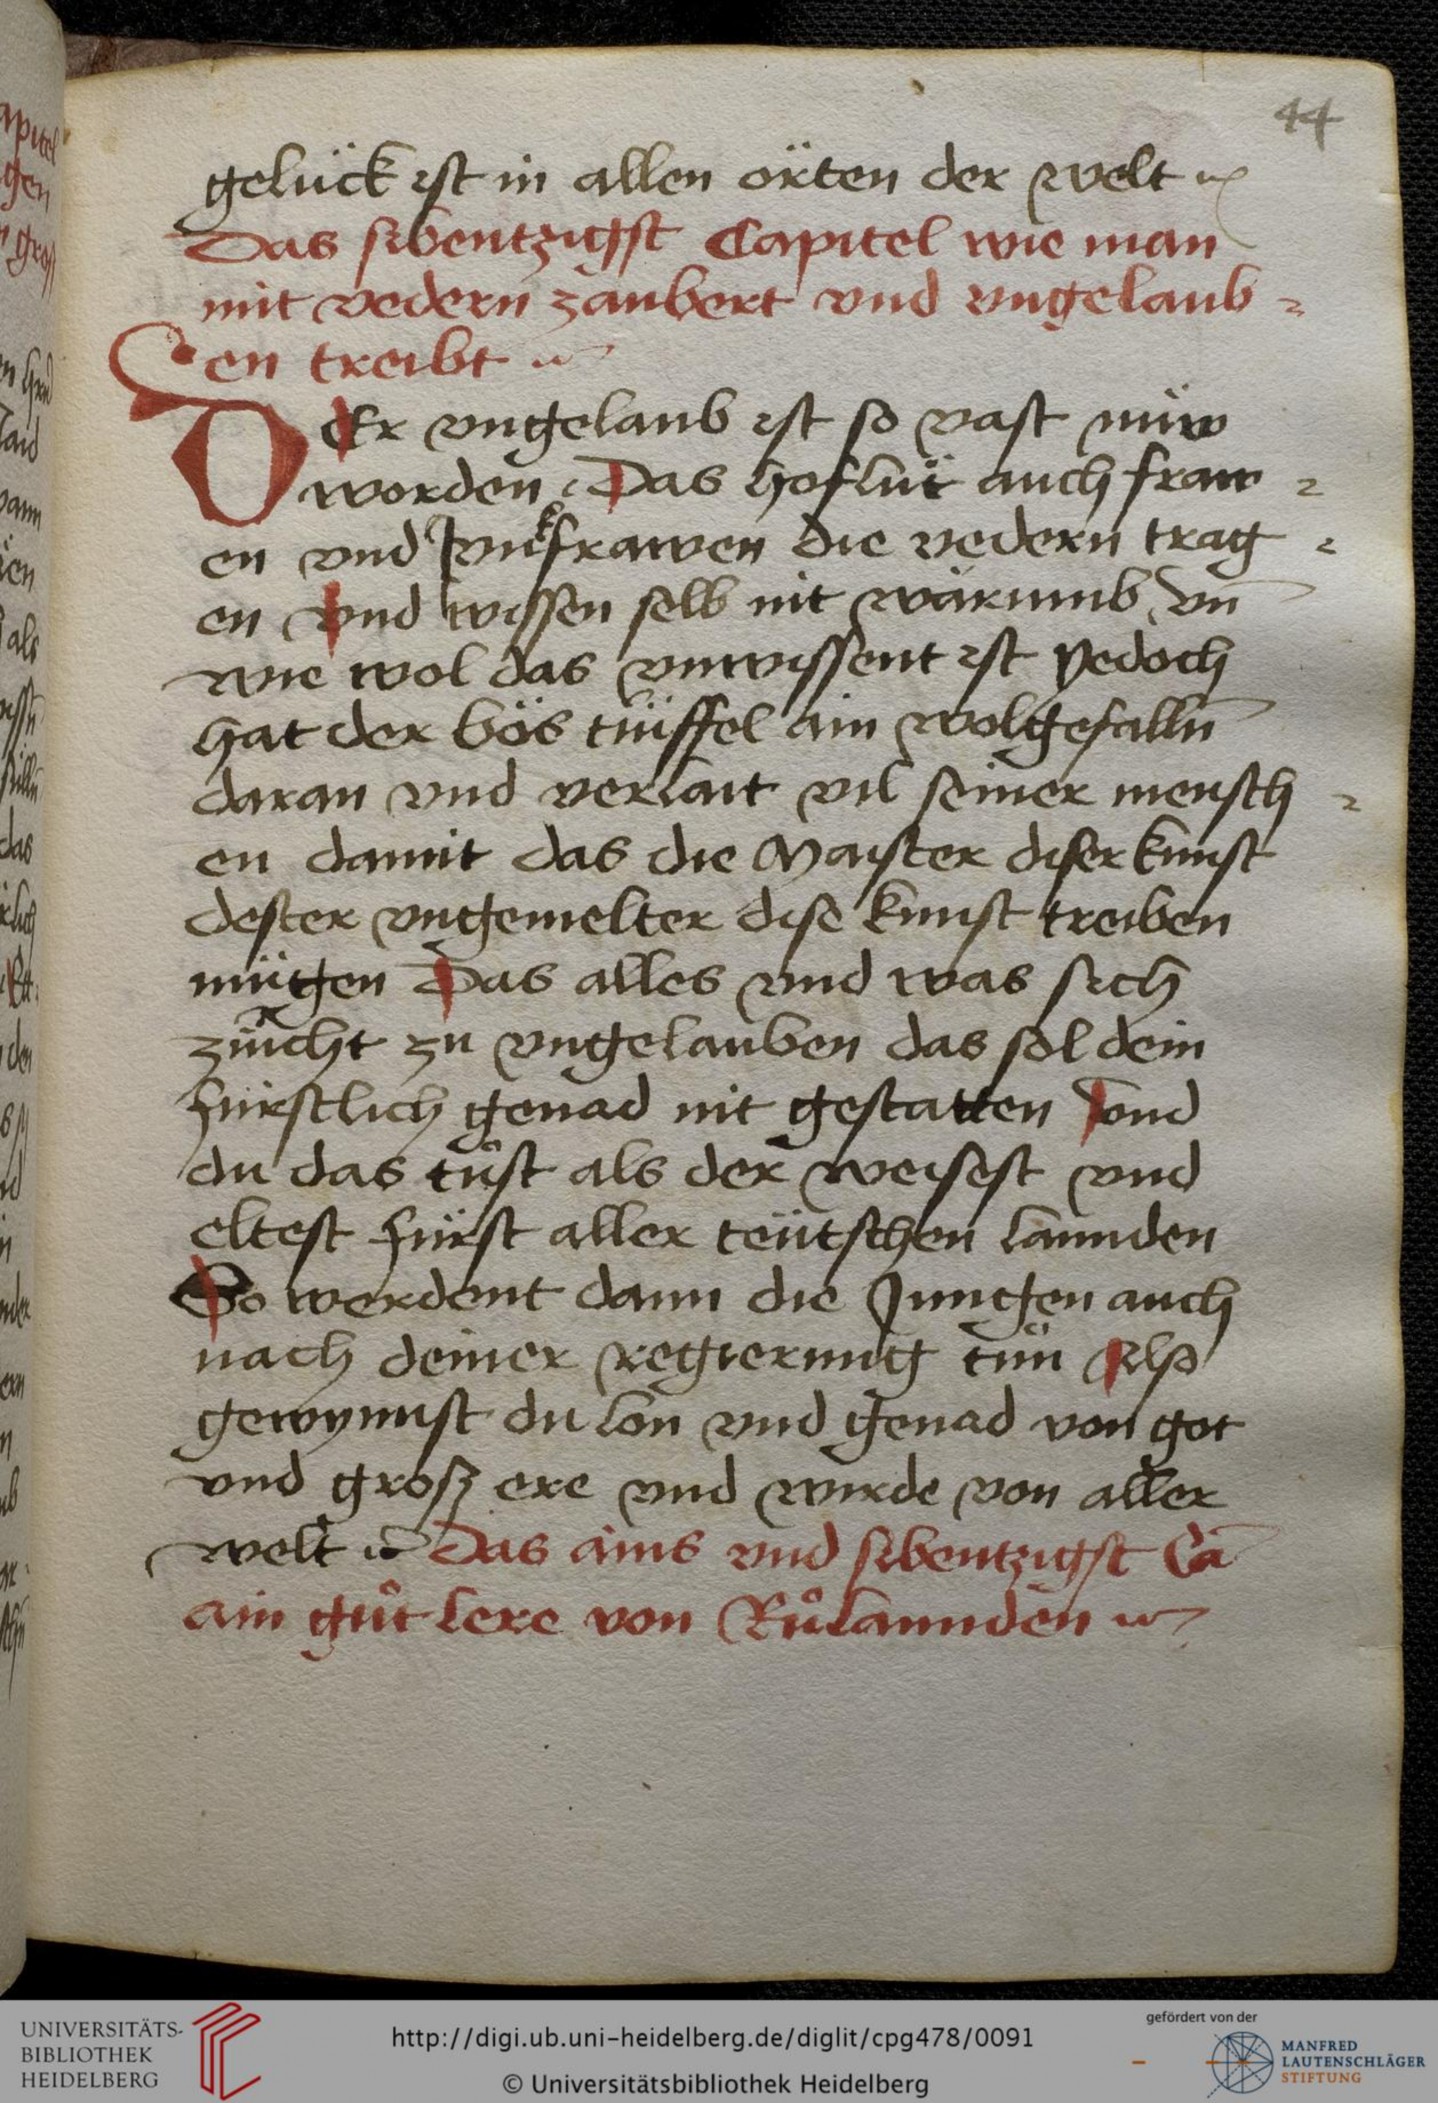 44
gelück ist in allen örten der welt
Das sibentzigst Capitel wie man
mit vedern zaubert vnd vngelaub
en treibt
Der vngelaub ist so vast nüw
worden Das hoflüt auch fraw
en vnd Junkfrawen die vedern trag
en vnd wissen selb nit wärumb vn̄
wie wol das vnwissent ist yedoch
hat der bös tüffel ain wolgefalln̄
daran vnd verlait vil seiner mensch
en damit das die Maister diser kunst
dester vngemelter dise kunst treiben
mügen Das alles vnd was sich
zücht zu vngelauben das sol dein
fürstlich genad nit gestatten vnd
du das tůst als der weisest vnd
eltest fürst aller teütschen lannden
So werdent dann die Jungen auch
nach deiner regierung tün Also
gewynnst du lon vnd genad von got
vnd grosz ere vnd wirde von aller
welt Das ains vnd sibentzigst Cā
ain gůt lere von Růlannden
apitel
gen
als
das
den
UNIVERSITÄTS-
BIBLIOTHEK
HEIDELBERG
http://digi.ub.uni-heidelberg.de/diglit/cpg478/0091
© Universitätsbibliothek Heidelberg
gefördert von der
MANFRED
LAUTENSCHLÄGER
STIFTUNG